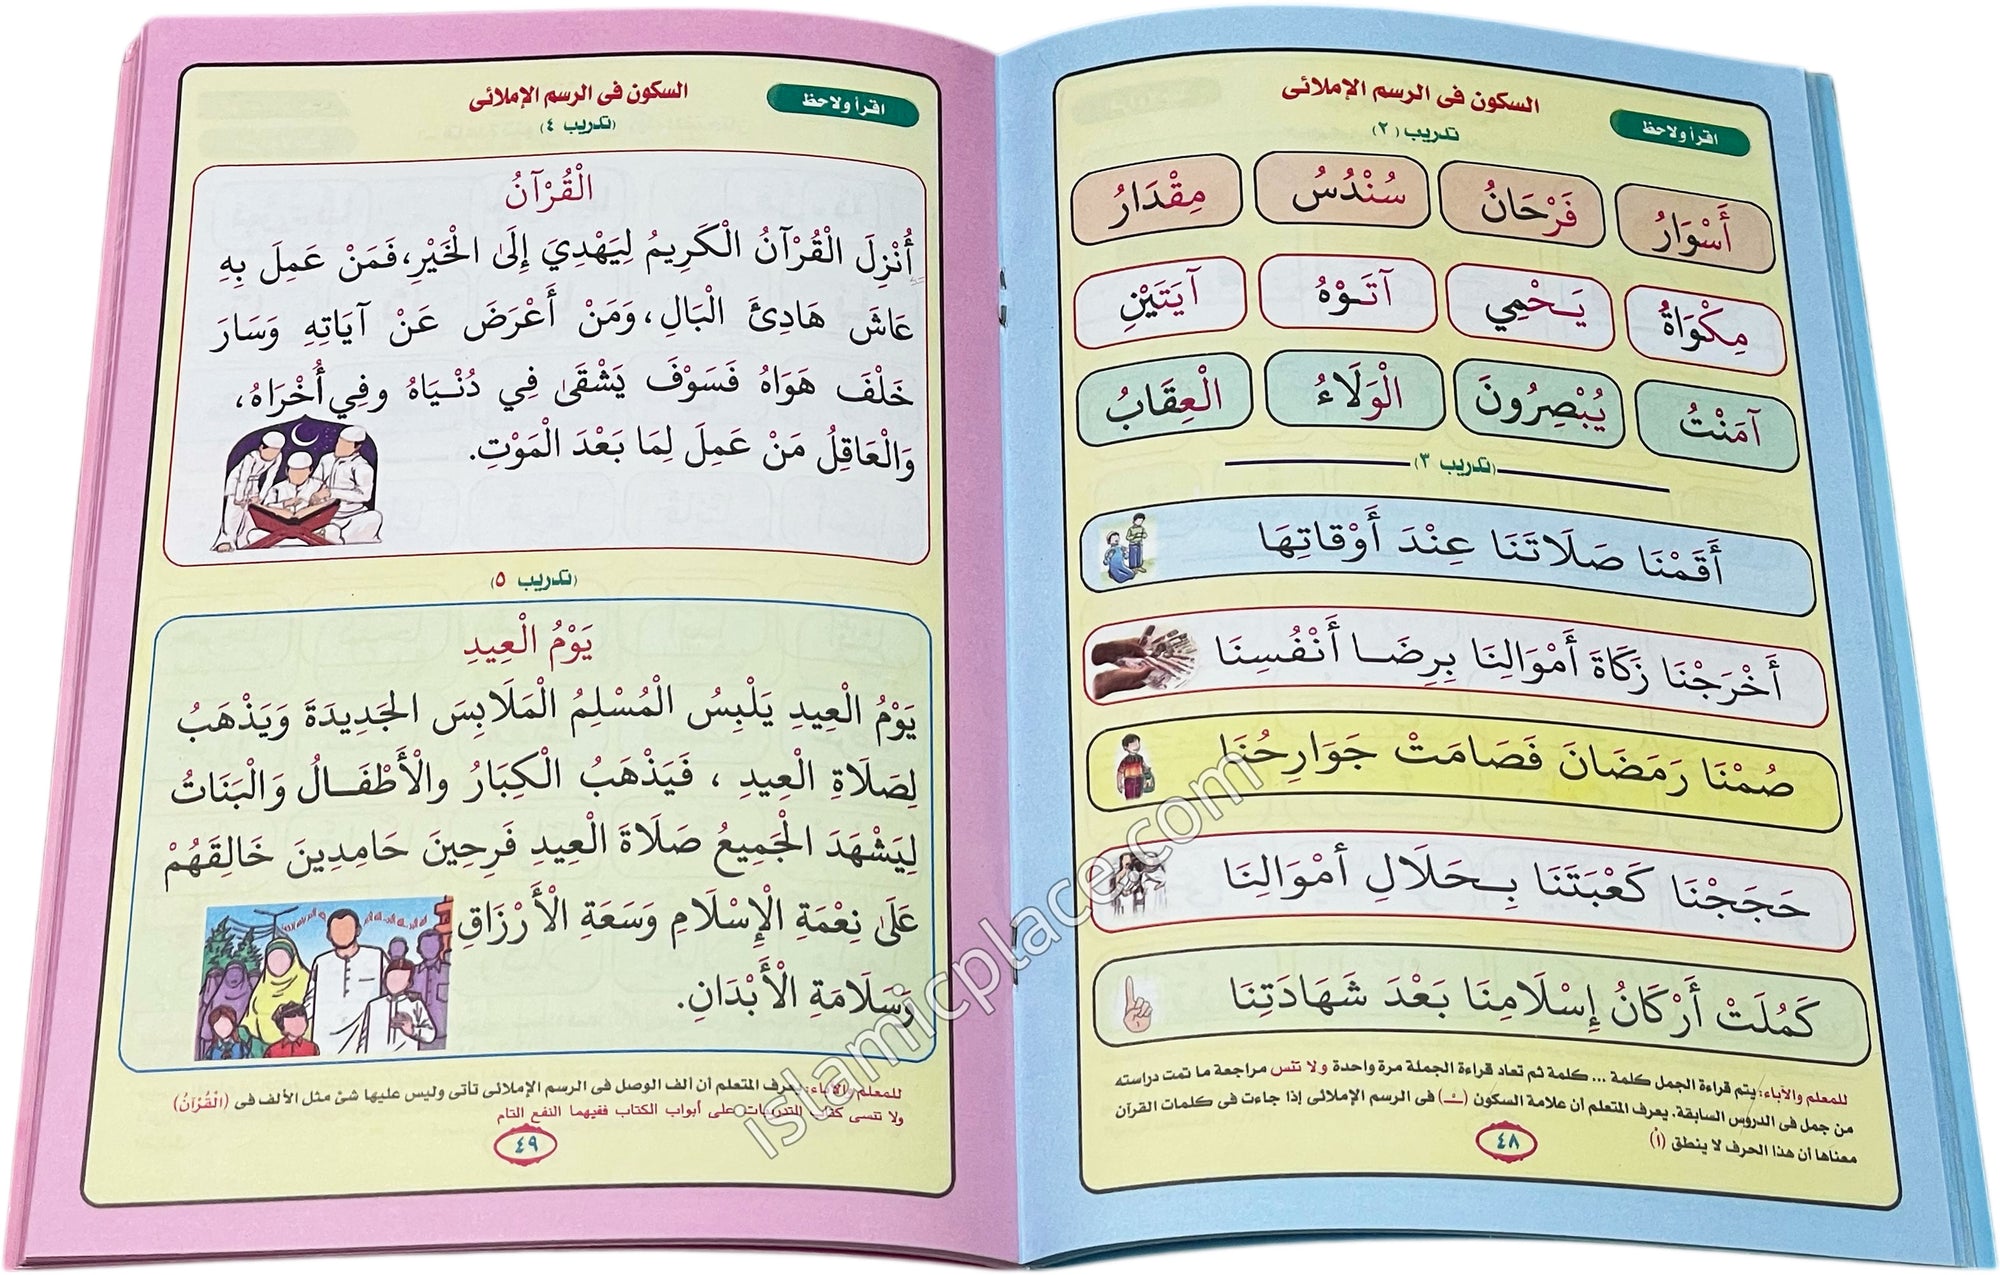 اقرأ ولاحظ
السكون فى الرسم الإملائى
(تدريب ٢)
أَسْوَارُ فَرْحَانُ سُنْدُسُ مِقْدَارُ
مِكْوَاةُ يَـحْمِي آتَـوْهُ آيَتَيْنِ
آمَنْتُ يُبْصِرُونَ الْوَلَاءُ الْعِقَابُ
(تدريب ٣)
أَقَمْنَا صَلَاتَنَا عِنْدَ أَوْقَاتِهَا
أَخْرَجْنَا زَكَاةَ أَمْوَالِنَا بِرِضَـا أَنْفُسِنَا
صُمْنَا رَمَضَانَ فَصَامَتْ جَوَارِحُنَا
حَجَجْنَا كَعْبَتَنَا بِـحَلَالِ أمْوَالِنَا
كَمُلَتْ أَرْكَانُ إِسْلَامِنَا بَعْدَ شَهَادَتِنَا
للمعلم والآباء: يتم قراءة الجمل كلمة ... كلمة ثم تعاد قراءة الجملة مرة واحدة ولا تنس مراجعة ما تمت دراسته
من جمل فى الدروس السابقة. يعرف المتعلم أن علامة السكون (ــْـ) فى الرسم الإملائى إذا جاءت فى كلمات القرآن
معناها أن هذا الحرف لا ينطق (اْ)
٤٨
اقرأ ولاحظ
السكون فى الرسم الإملائى
(تدريب ٤)
الْقُرْآنُ
أُنْزِلَ الْقُرْآنُ الْكَرِيمُ لِيَهْدِيَ إِلَى الْخَيْرِ، فَمَنْ عَمِلَ بِهِ
عَاشَ هَادِئَ الْبَالِ، وَمَنْ أَعْرَضَ عَنْ آيَاتِهِ وَسَارَ
خَلْفَ هَوَاهُ فَسَوْفَ يَشْقَى فِي دُنْـيَاهُ وفِي أُخْرَاهُ،
وَالْعَاقِلُ مَنْ عَمِلَ لِمَا بَعْدَ الْمَوْتِ.
(تدريب ٥)
يَوْمُ الْعِيدِ
يَوْمُ الْعِيدِ يَلْبِسُ الْمُسْلِمُ الْمَلَابِسَ الجَدِيدَةَ وَيَذْهَبُ
لِصَلَاةِ الْعِيدِ ، فَيَذْهَبُ الْكِبَارُ والْأَطْفَـالُ وَالْبَنَاتُ
لِيَشْهَدَ الْجَمِيعُ صَلَاةَ الْعِيدِ فَرِحِينَ حَامِدِينَ خَالِقَهُمْ
عَلَى نِعْمَةِ الْإِسْلَامِ وَسَعَةِ الْأَرْزَاقِ
وَسَلَامَةِ الْأَبْدَانِ.
للمعلم والآباء: يعرف المتعلم أن ألف الوصل فى الرسم الإملائى تأتى وليس عليها شئ مثل الألف فى (الْقُرْآنُ)
ولا تنسى كتاب التدريبات على أبواب الكتاب ففيهما النفع التام
٤٩
islamicplace.com